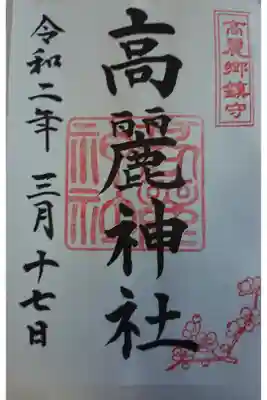 高麗郷鎮守
高麗神社
令和二年三月十七日